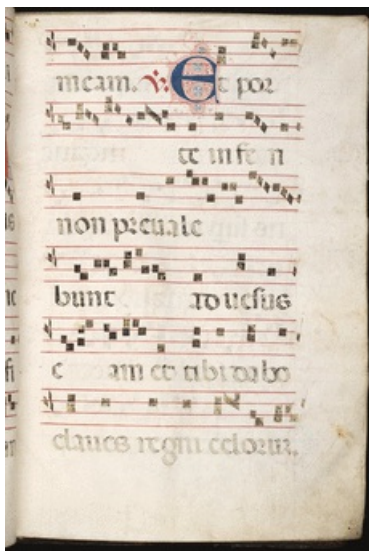 meam. ℟. Et por
te infe n
non preuale
bunt aduersus
e am et tibi dabo
claues regni celorum.